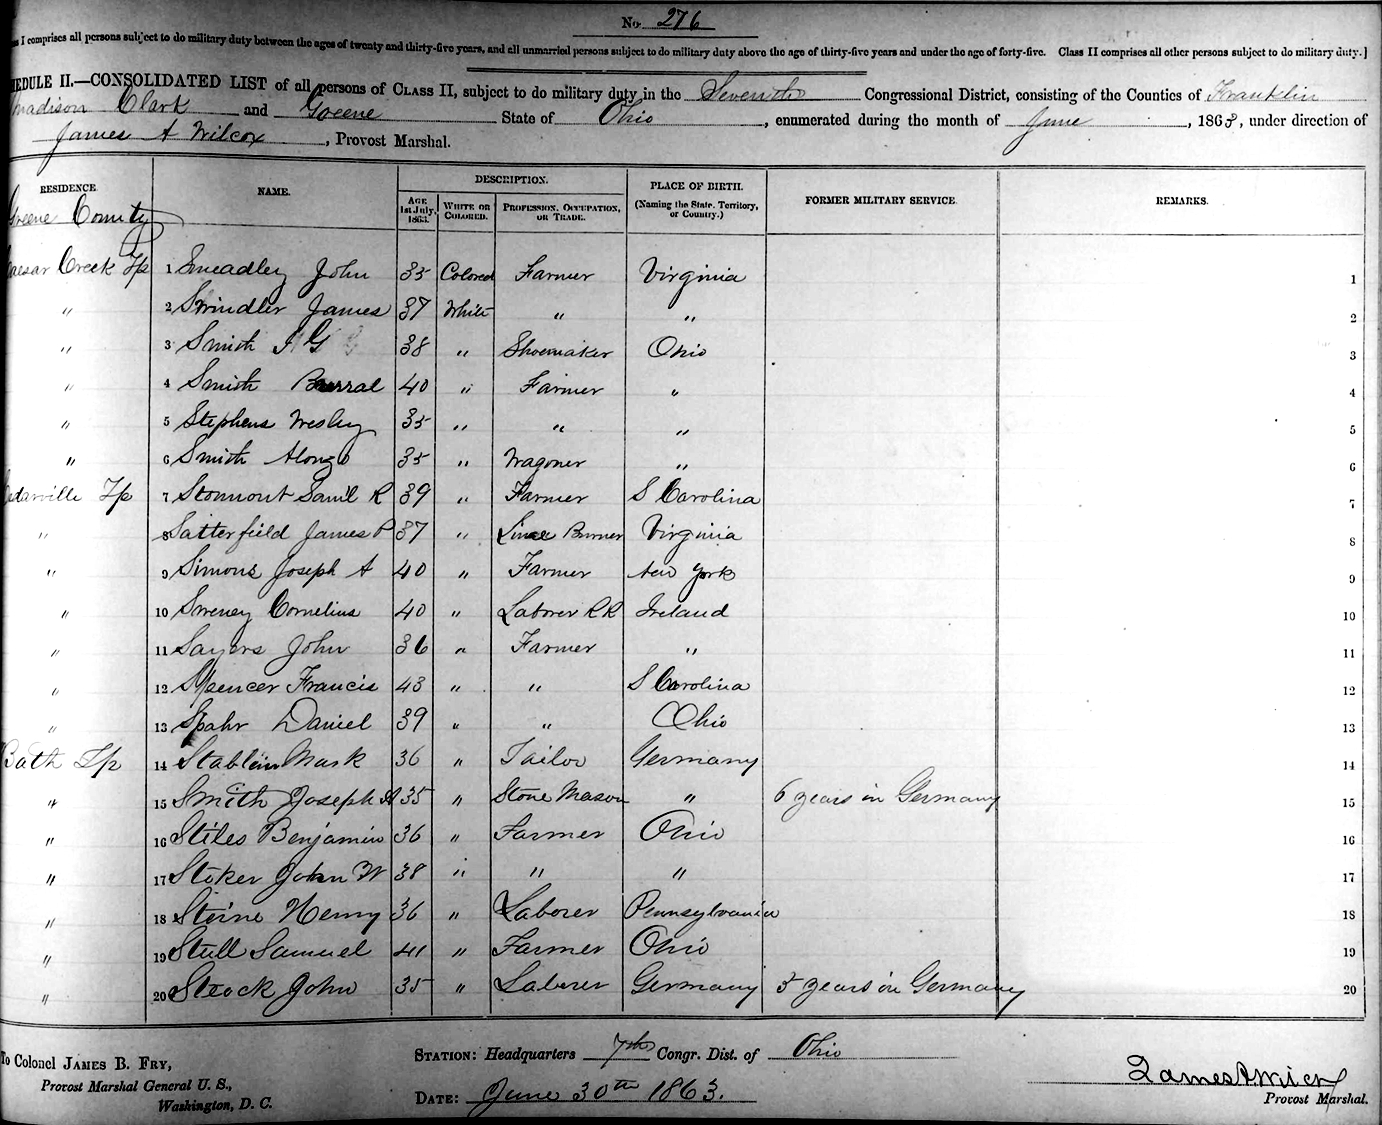 No. 276
I comprises all persons subject to do military duty between the ages of twenty and thirty-five years, and all unmarried persons subject to do military duty above the age of thirty-five years and under the age of forty-five. Class II comprises all other persons subject to do military duty.]
EDULE II.—CONSOLIDATED LIST of all persons of CLASS II, subject to do military duty in the Seventh Congressional District, consisting of the Counties of Franklin
Madison Clark and Greene State of Ohio, enumerated during the month of June, 1863, under direction of
James A Wilcox, Provost Marshal.
RESIDENCE. NAME. DESCRIPTION. PLACE OF BIRTH. (Naming the State, Territory, or Country.) FORMER MILITARY SERVICE. REMARKS.
AGE 1st July, 1863. WHITE OR COLORED. PROFESSION, OCCUPATION, OR TRADE.
Greene County
Caesar Creek Tp 1 Smeadley John 35 Colored Farmer Virginia 1
" 2 Swindler James 37 White " " 2
" 3 Smith I G 38 " Shoemaker Ohio 3
" 4 Smith Burral 40 " Farmer " 4
" 5 Stephens Wesley 35 " " " 5
" 6 Smith Alonzo 35 " Wagoner " 6
Cedarville Tp 7 Stormont Saml R 39 " Farmer S Carolina 7
" 8 Satterfield James P 37 " Lime Burner Virginia 8
" 9 Simons Joseph A 40 " Farmer New York 9
" 10 Sweney Cornelius 40 " Laborer R R Ireland 10
" 11 Sayers John 36 " Farmer " 11
" 12 Spencer Francis 43 " " S Carolina 12
" 13 Spahr Daniel 39 " " Ohio 13
Bath Tp 14 Stablein Mark 36 " Tailor Germany 14
" 15 Smith Joseph A 35 " Stone Mason " 6 years in Germany 15
" 16 Stiles Benjamin 36 " Farmer Ohio 16
" 17 Stoker John W 38 " " " 17
" 18 Steine Henry 36 " Laborer Pennsylvania 18
" 19 Stull Samuel 41 " Farmer Ohio 19
" 20 Strock John 35 " Laborer Germany 5 years in Germany 20
To Colonel JAMES B. FRY,
Provost Marshal General U. S.,
Washington, D. C.
STATION: Headquarters 7th Congr. Dist. of Ohio
DATE: June 30th 1863.
Provost Marshal.